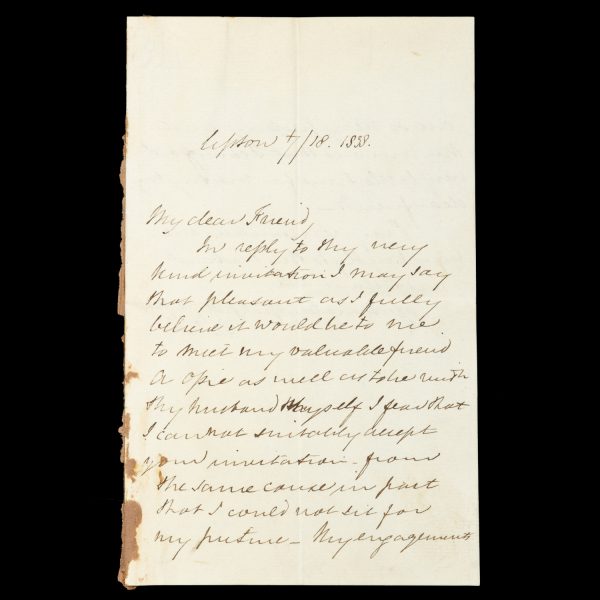 Upton 7/18. 1838.
My dear Friend,
In reply to thy very
kind invitation I may say
that pleasant as I fully
believe it would be to me
to meet my valuable friend
A Opie as well as to be with
thy husband & thyself I fear that
I cannot suitably accept
your invitation – from
the same cause in part
that I could not sit for
my picture – My engagements